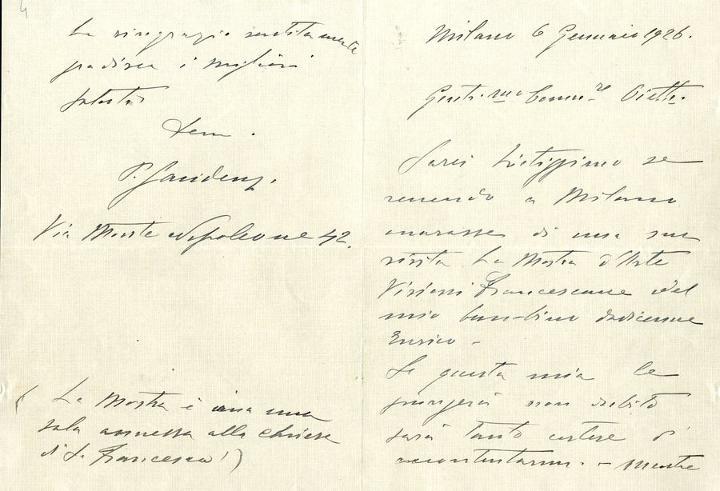 Milano 6 Gennaio 1926.
Gent.mo Comm.re Ojetti.
Sarei lietissimo se
venendo a Milano
onorasse di una sua
visita La Mostra d'Arte
Visioni Francescane del
mio bambino dodicenne
Enrico –
Se questa mia le
giungerà non dubito
sarà tanto cortese d'
accontentarmi. – Mentre
La ringrazio sentitamente
gradisca i migliori
saluti
Dem.
P. Gaudenzi.
Via Monte Napoleone 42.
(La Mostra è una
sala annessa alla chiesa
di S. Francesco!)
4